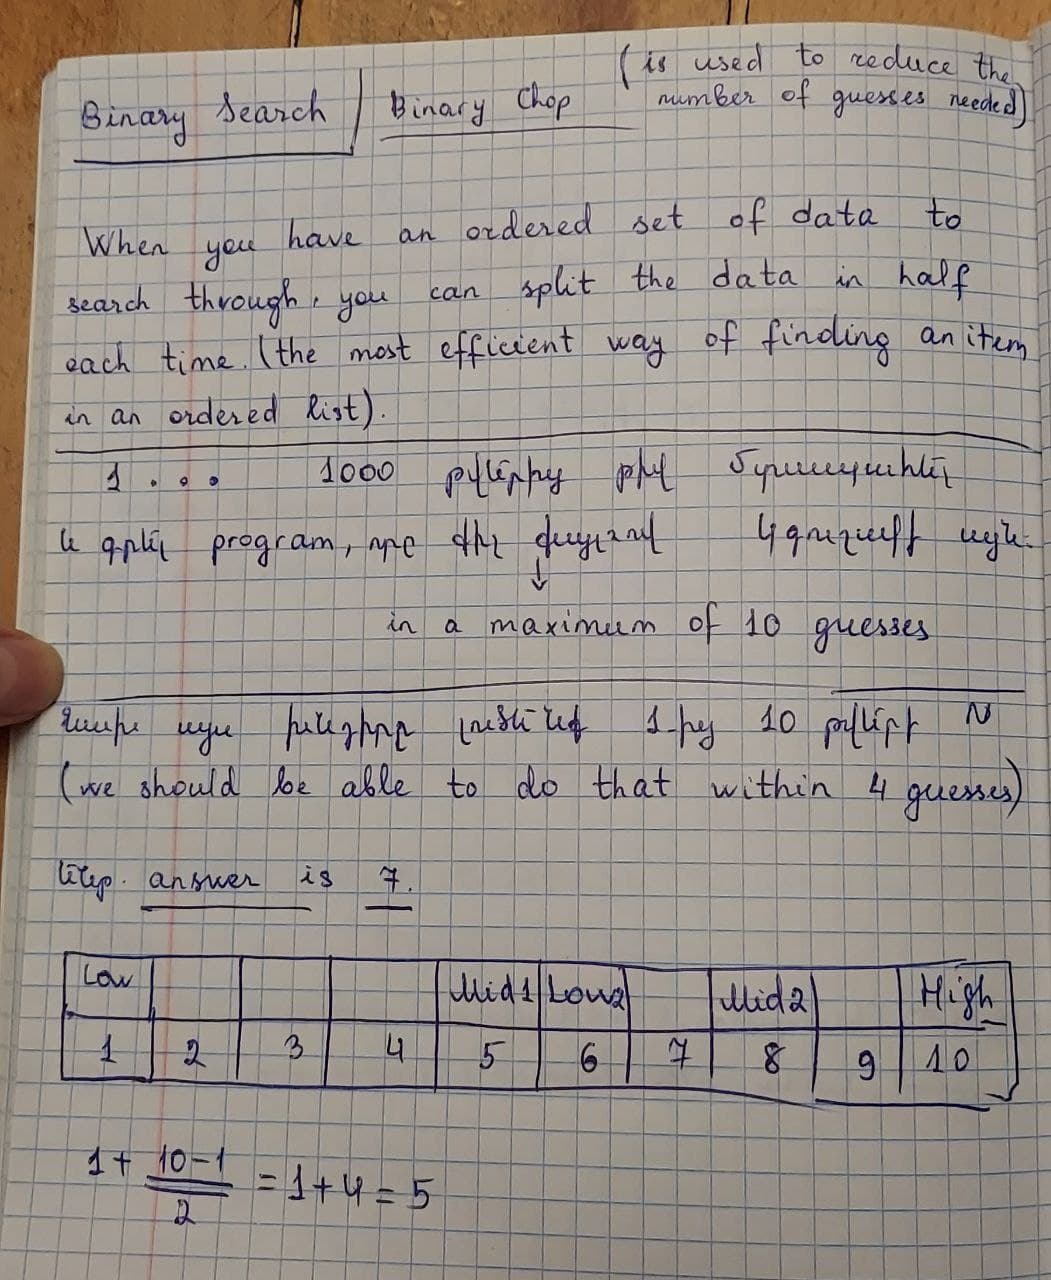 Binary Search / Binary Chop (is used to reduce the
number of guesses needed)
When you have an ordered set of data to
search through, you can split the data in half
each time. (the most efficient way of finding an item
in an ordered list).
1 . . . 1000 թվերից թիվ
և գրել program, որը մեզ կգուշակի այն:
↓
in a maximum of 10 guesses
Նախ այս խնդիրը լուծենք 1-ից 10 թվերի
(we should be able to do that within 4 guesses)
answer is 7.
Low Mid1 Low2 Mid2 High
1 2 3 4 5 6 7 8 9 10
1 + (10-1)/2 = 1 + 4 = 5